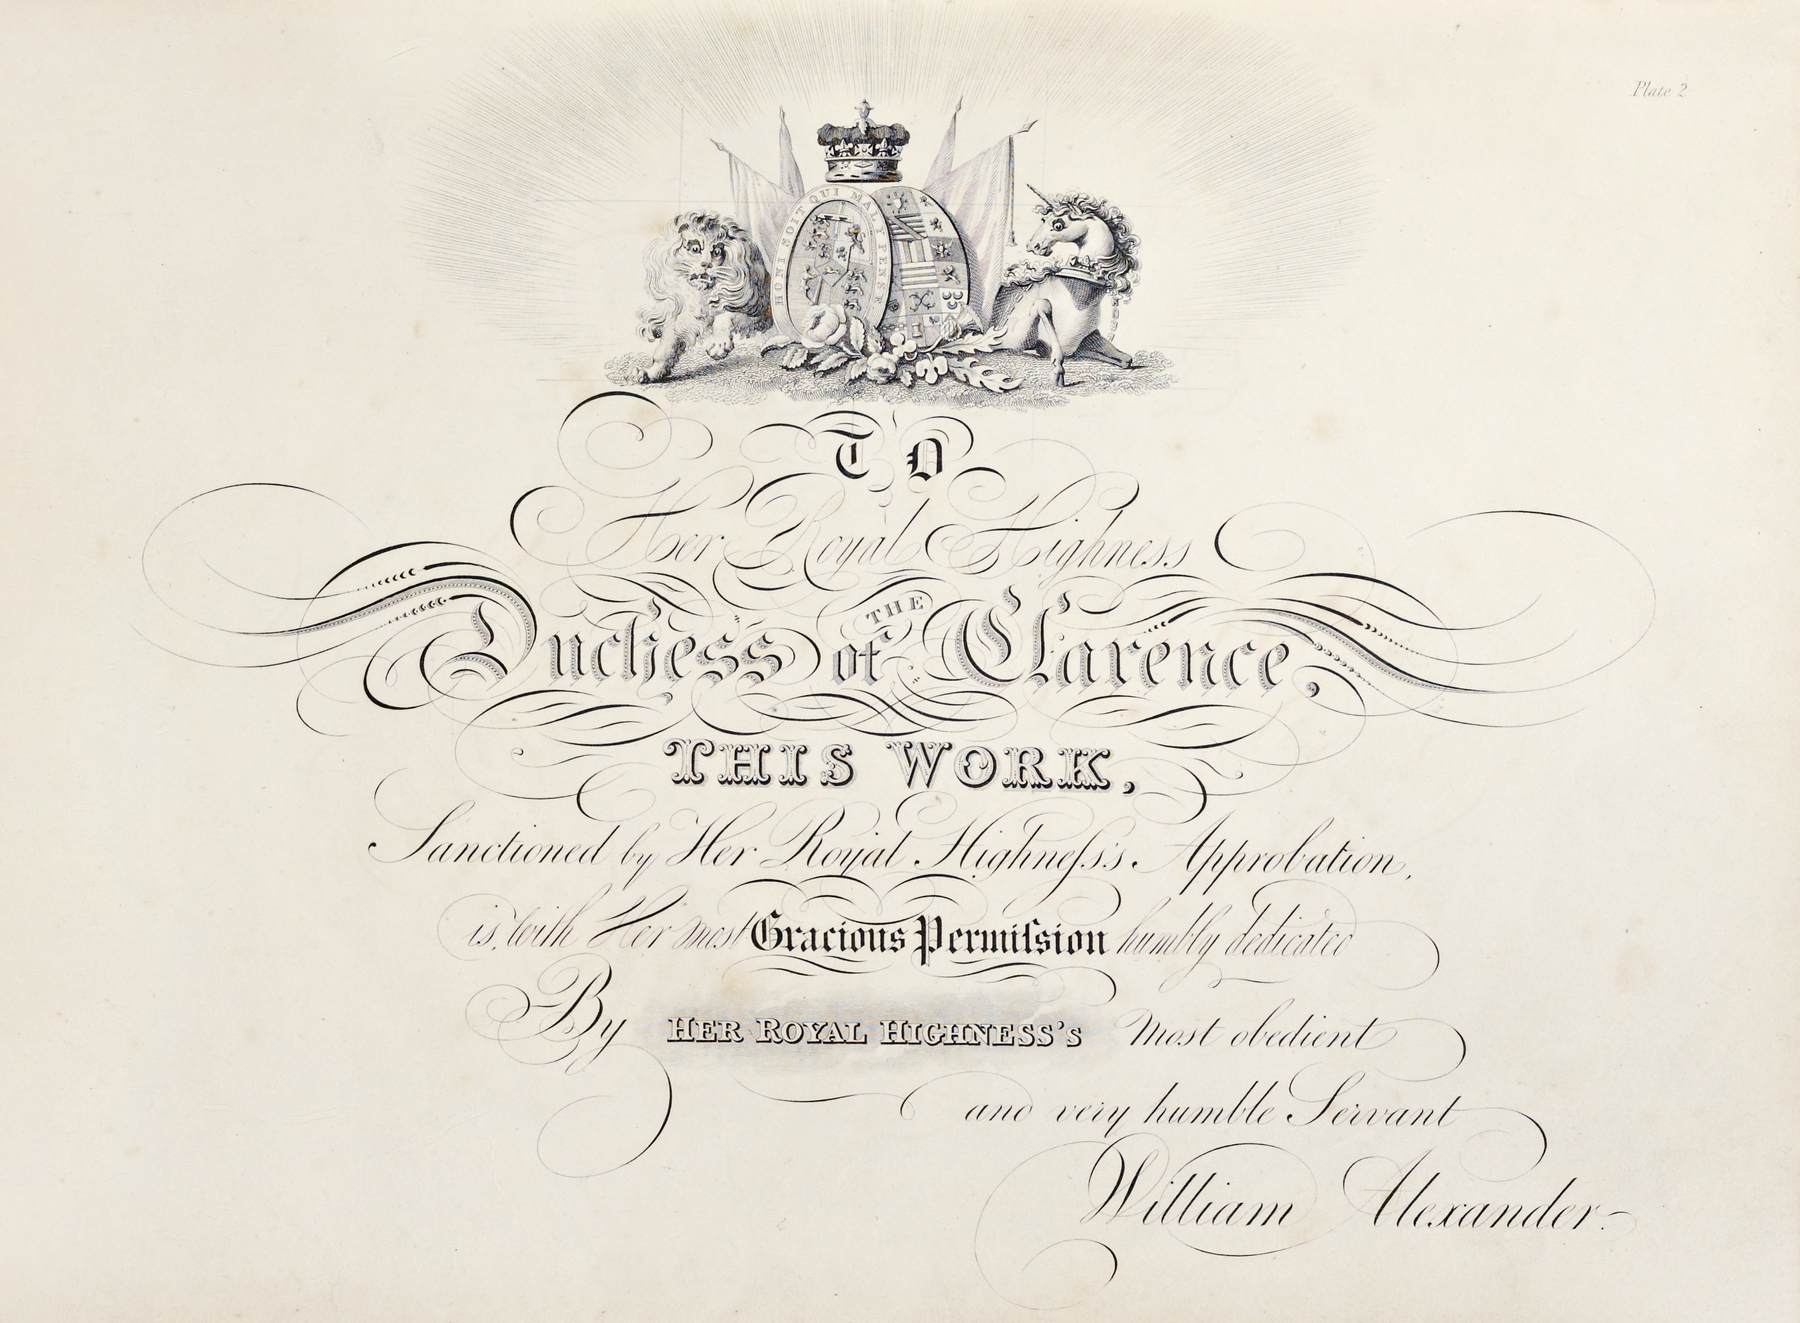 Plate 2
HONI SOIT QUI MAL Y PENSE
TO
Her Royal Highness
THE
Duchess of Clarence,
THIS WORK,
Sanctioned by Her Royal Highneſs's Approbation,
is, with Her most Gracious Permiſsion humbly dedicated
By HER ROYAL HIGHNESS'S Most obedient
and very humble Servant
William Alexander.